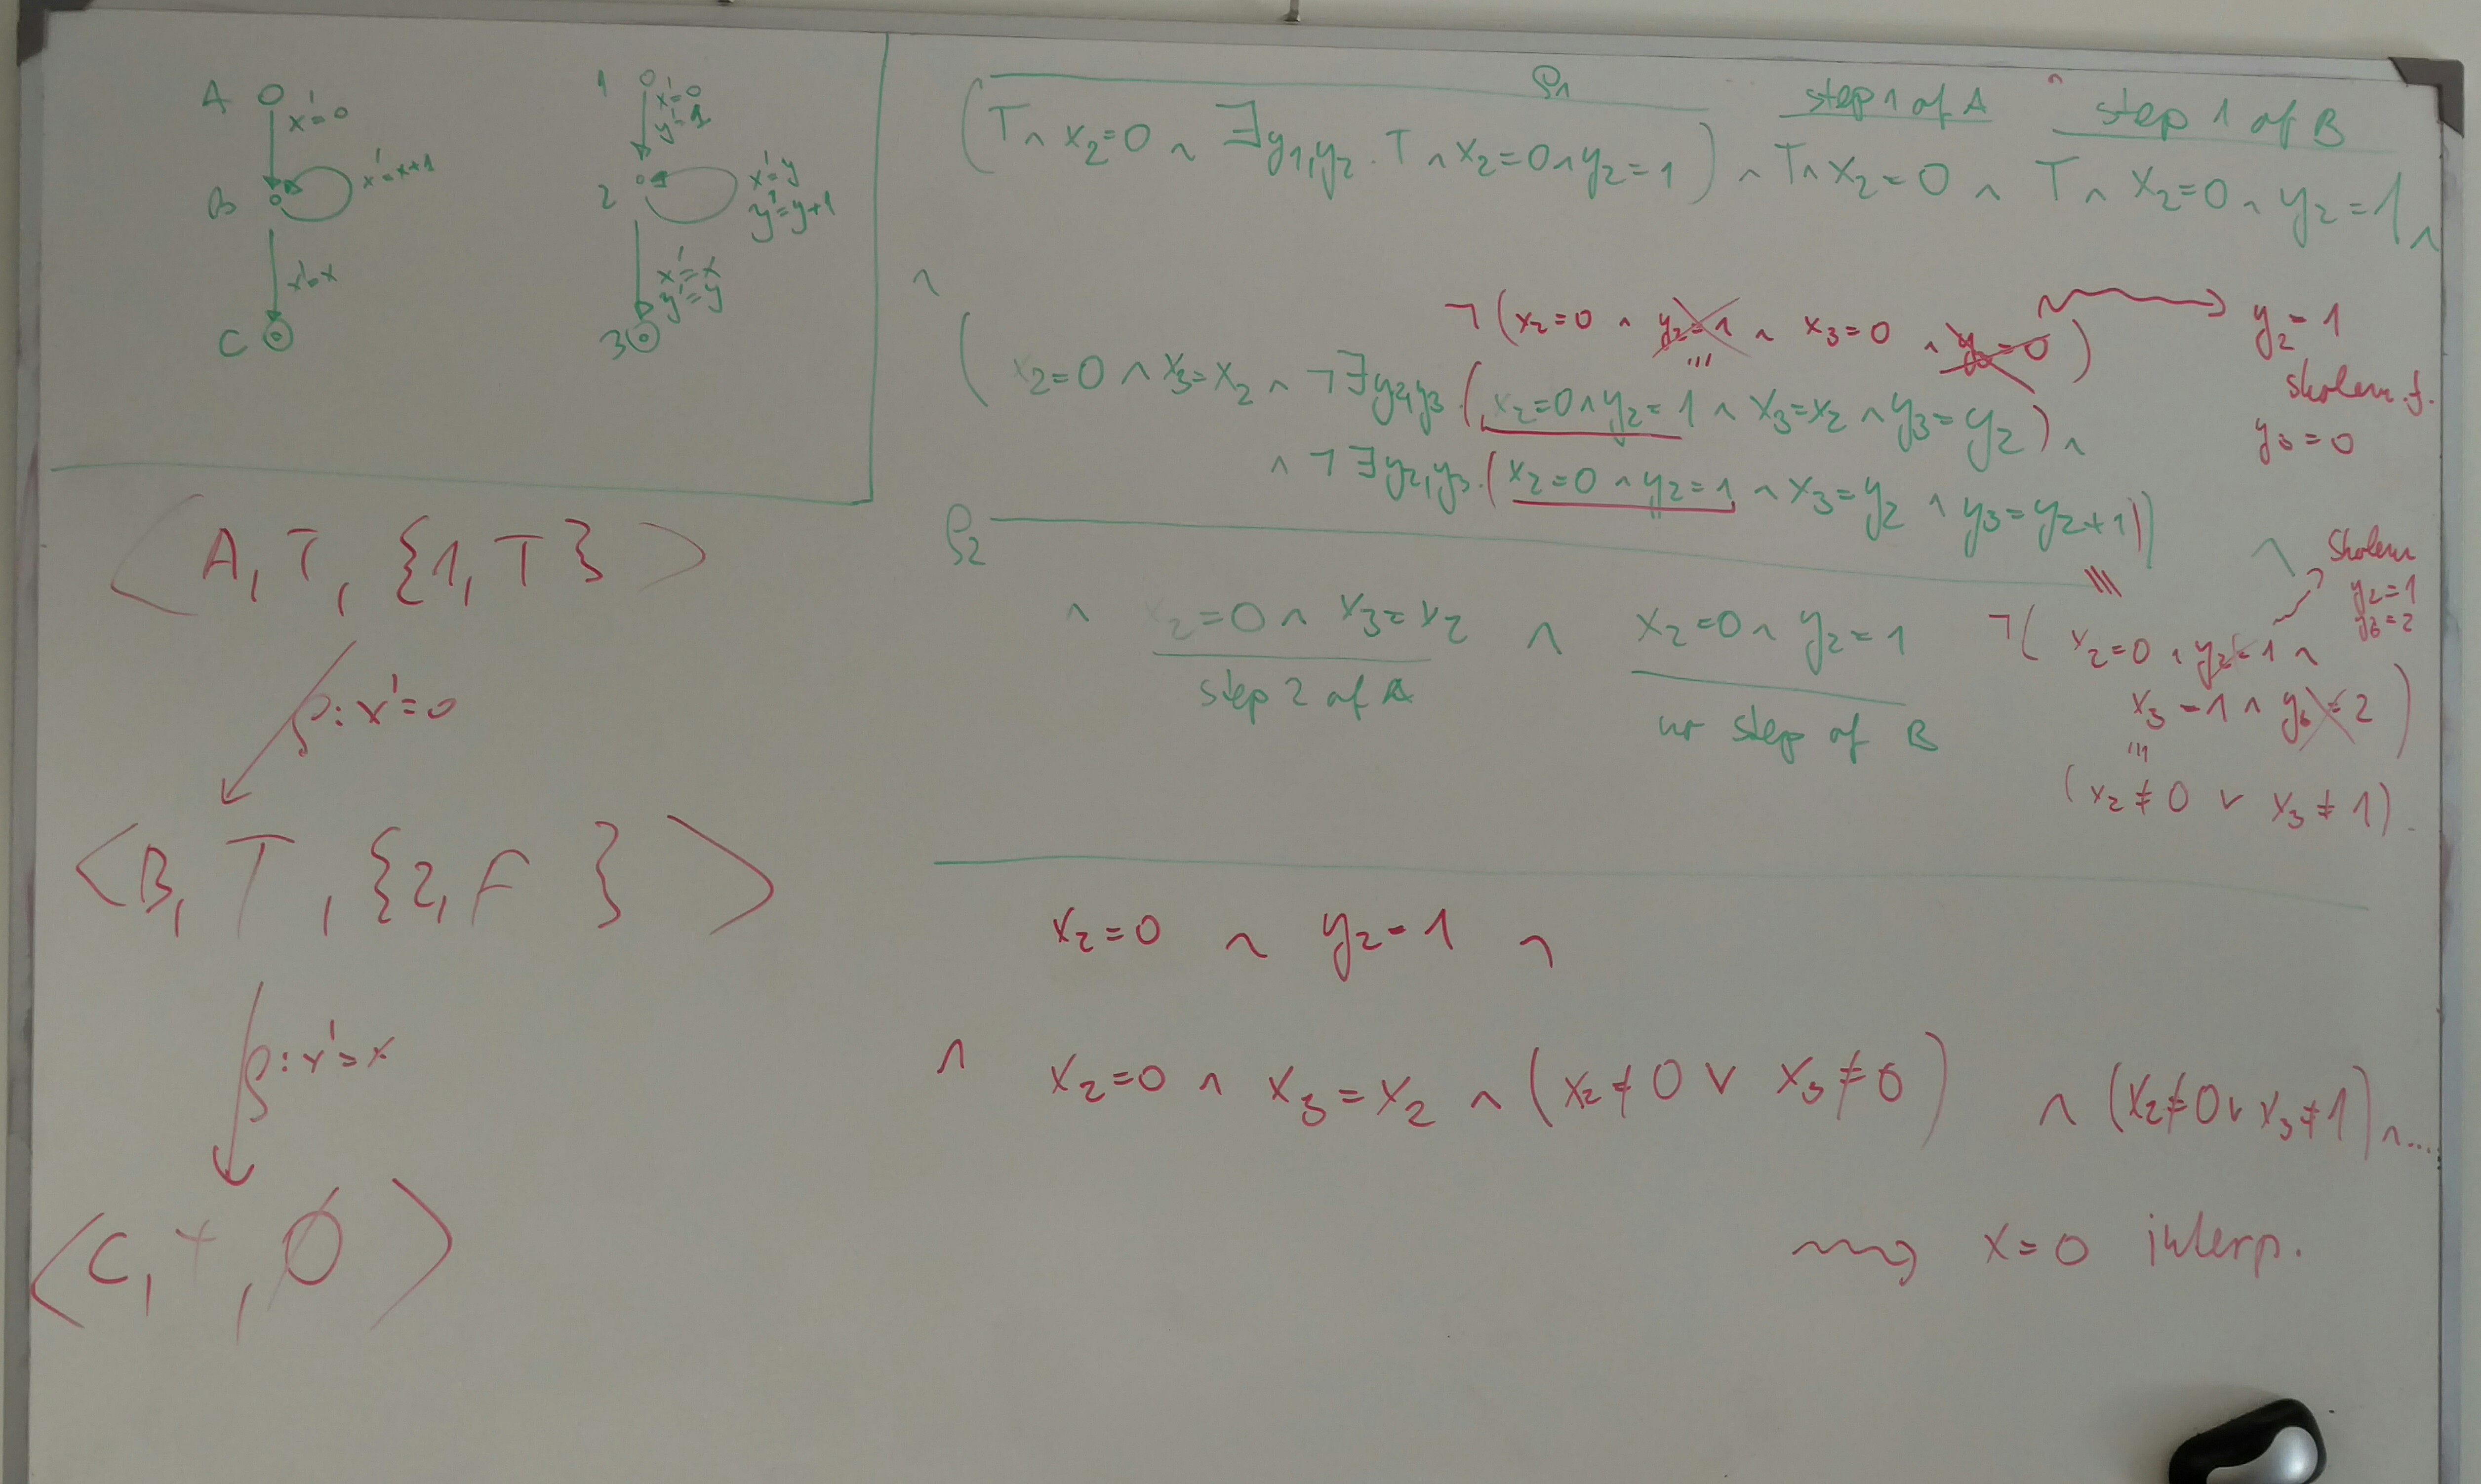 A x'=0
B x'=x+1
x'=x
C
1 x'=0
y'=1
2 x'=y
y'=y+1
x'=x
y'=y
3
⟨A, T, {1, T}⟩
ρ: x'=0
⟨B, T, {2, F}⟩
ρ: x'=x
⟨C, T, ∅⟩
ρ1 step 1 of A ∧ step 1 of B
(T ∧ x2=0 ∧ ∃y1,y2. T ∧ x2=0 ∧ y2=1) ∧ T ∧ x2=0 ∧ T ∧ x2=0 ∧ y2=1 ∧
∧
¬(x2=0 ∧ y2=1 ∧ x3=0 ∧ y3=0) y2=1
≡ skolem f.
y3=0
(x2=0 ∧ x3=x2 ∧ ¬∃y2,y3.(x2=0 ∧ y2=1 ∧ x3=x2 ∧ y3=y2) ∧
∧ ¬∃y2,y3.(x2=0 ∧ y2=1 ∧ x3=y2 ∧ y3=y2+1))
ρ2 ∧
∧ x2=0 ∧ x3=x2 ∧ x2=0 ∧ y2=1
step 2 of A no step of B
≡ Skolem
y2=1
y3=2
¬(x2=0 ∧ y2=1 ∧
x3=1 ∧ y3=2)
≡
(x2≠0 ∨ x3≠1).
x2=0 ∧ y2=1 ∧
∧ x2=0 ∧ x3=x2 ∧ (x2≠0 ∨ x3≠0) ∧ (x2≠0 ∨ x3≠1) ∧ ...
x=0 interp.